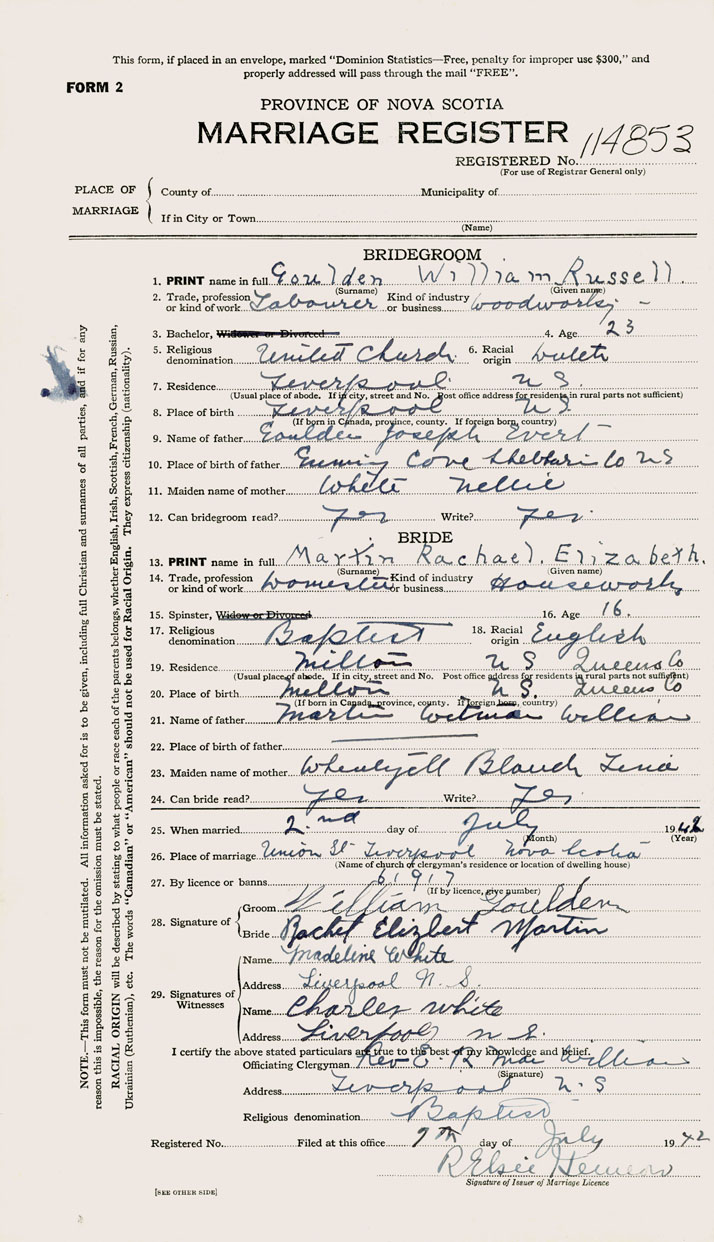 This form, if placed in an envelope, marked "Dominion Statistics—Free, penalty for improper use $300," and
properly addressed will pass through the mail "FREE".
FORM 2
PROVINCE OF NOVA SCOTIA
MARRIAGE REGISTER
REGISTERED No. 114853
(For use of Registrar General only)
PLACE OF MARRIAGE
County of Municipality of
If in City or Town
(Name)
BRIDEGROOM
1. PRINT name in full Goulden William Russell.
(Surname) (Given name)
2. Trade, profession or kind of work Labourer Kind of industry or business woodworks
3. Bachelor, Widower or Divorced 4. Age 23
5. Religious denomination United Church 6. Racial origin
7. Residence Liverpool N S.
(Usual place of abode. If in city, street and No. Post office address for residents in rural parts not sufficient)
8. Place of birth Liverpool N S.
(If born in Canada, province, county. If foreign born, country)
9. Name of father Goulden Joseph Evert
10. Place of birth of father Cove Co NS
11. Maiden name of mother White Nellie
12. Can bridegroom read? Yes Write? Yes
BRIDE
13. PRINT name in full Martin Rachael. Elizabeth.
(Surname) (Given name)
14. Trade, profession or kind of work Domestic Kind of industry or business Housework
15. Spinster, Widow or Divorced 16. Age 16.
17. Religious denomination Baptist 18. Racial origin English
19. Residence Milton N S Queens Co
(Usual place of abode. If in city, street and No. Post office address for residents in rural parts not sufficient)
20. Place of birth Milton N S. Queens Co
(If born in Canada, province, county. If foreign born, country)
21. Name of father Martin Witman William
22. Place of birth of father
23. Maiden name of mother
24. Can bride read? Yes Write? Yes
25. When married 2nd day of July 1942
(Month) (Year)
26. Place of marriage Union St Liverpool Nova Scotia
(Name of church or clergyman's residence or location of dwelling house)
27. By licence or banns 61917
(If by licence, give number)
28. Signature of
Groom William Goulden
Bride Rachel Elizbert Martin
29. Signatures of Witnesses
Name Madeline White
Address Liverpool N. S.
Name Charles White
Address Liverpool N S.
I certify the above stated particulars are true to the best of my knowledge and belief.
Officiating Clergyman Rev E. R. Mac William
(Signature)
Address Liverpool N. S
Religious denomination Baptist
Registered No. Filed at this office 9th day of July 1942
R Elsie
Signature of Issuer of Marriage Licence
[SEE OTHER SIDE]
NOTE.—This form must not be mutilated. All information asked for is to be given, including full Christian and surnames of all parties, and if for any
reason this is impossible, the reason for the omission must be stated.
RACIAL ORIGIN will be described by stating to what people or race each of the parents belongs, whether English, Irish, Scottish, French, German, Russian,
Ukrainian (Ruthenian), etc. The words "Canadian" or "American" should not be used for Racial Origin. They express citizenship (nationality).